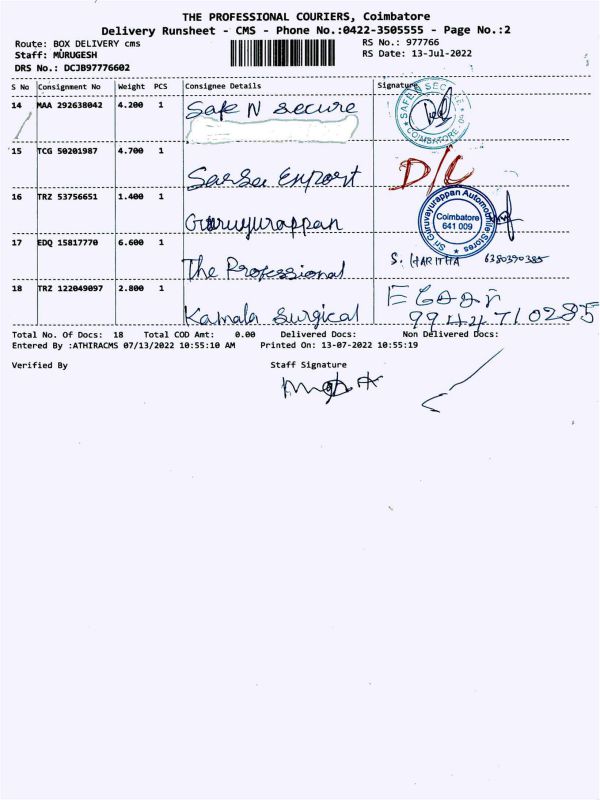 THE PROFESSIONAL COURIERS, Coimbatore
Delivery Runsheet - CMS - Phone No.:0422-3505555 - Page No.:2
Route: BOX DELIVERY cms RS No.: 977766
Staff: MURUGESH RS Date: 13-Jul-2022
DRS No.: DCJB97776602
S No Consignment No Weight PCS Consignee Details Signature
14 MAA 292638042 4.200 1 Safe N secure
SAFE N SECURE COIMBATORE
15 TCG 50201987 4.700 1 D/C
Export
16 TRZ 53756651 1.400 1 Guruyurappan
Sri Guruvayurappan Automobile Stores
Coimbatore
641 009
17 EDQ 15817770 6.600 1 The Professional S. HARITHA 6380390385
18 TRZ 122049097 2.800 1 Kamala Surgical
9944710285
Total No. Of Docs: 18 Total COD Amt: 0.00 Delivered Docs: Non Delivered Docs:
Entered By :ATHIRACMS 07/13/2022 10:55:10 AM Printed On: 13-07-2022 10:55:19
Verified By Staff Signature